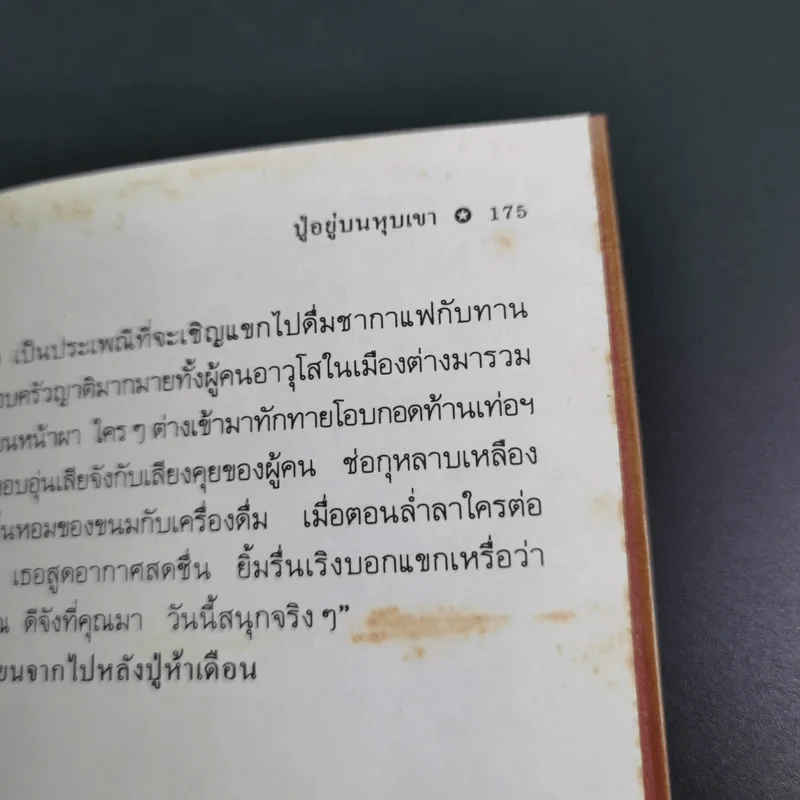 ปู่อยู่บนหุบเขา ✪ 175
เป็นประเพณีที่จะเชิญแขกไปดื่มชากาแฟกับทาน
บครัวญาติมากมายทั้งผู้คนอาวุโสในเมืองต่างมารวม
นหน้าผา ใคร ๆ ต่างเข้ามาทักทายโอบกอดท้านเท่อฯ
อบอุ่นเสียจังกับเสียงคุยของผู้คน ช่อกุหลาบเหลือง
นหอมของขนมกับเครื่องดื่ม เมื่อตอนล่ำลาใครต่อ
เธอสูดอากาศสดชื่น ยิ้มรื่นเริงบอกแขกเหรื่อว่า
ณ ดีจังที่คุณมา วันนี้สนุกจริง ๆ”
ยนจากไปหลังปู่ห้าเดือน